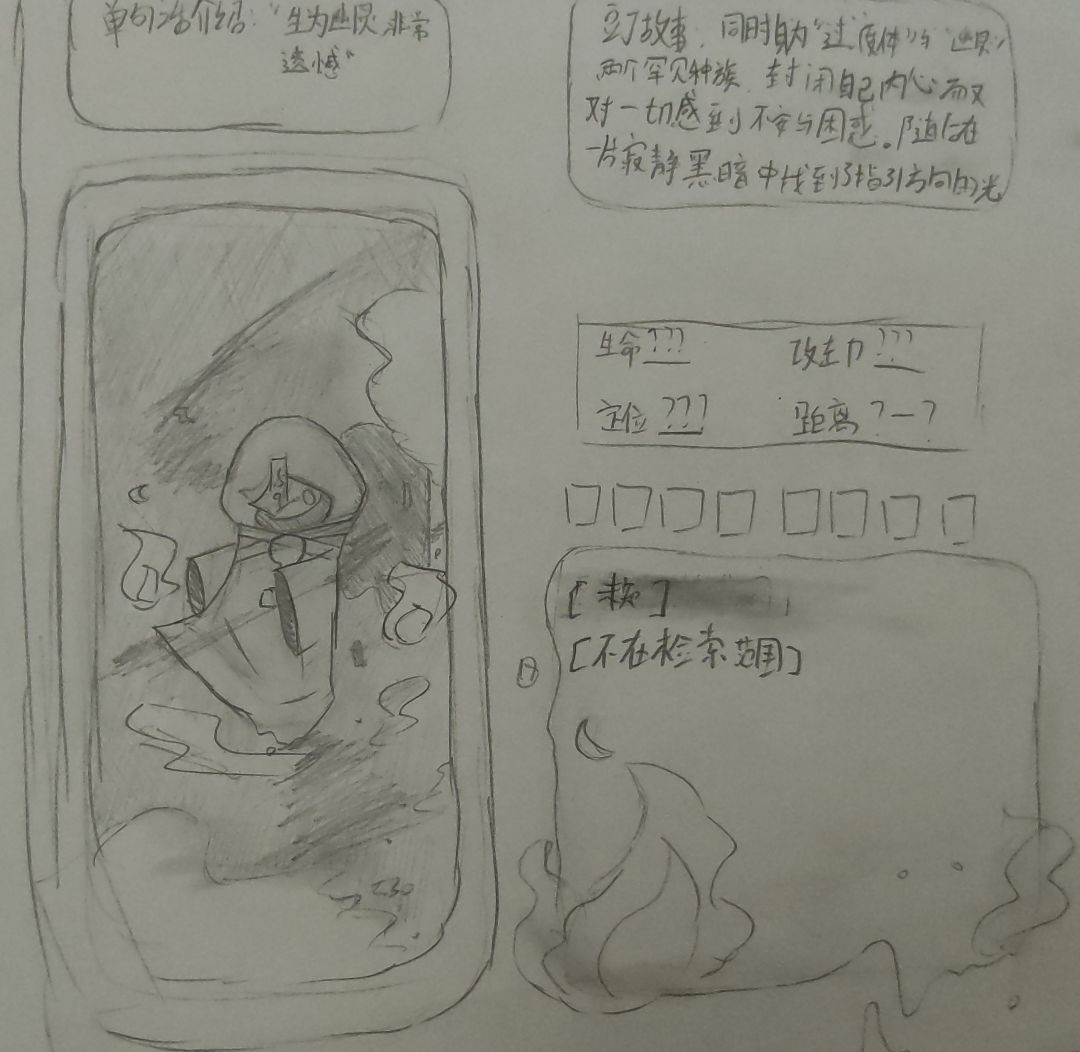 单句话介绍："生为幽灵,非常
遗憾"
故事,同时身为"过度体"与"幽灵"
两个罕见种族,封闭自己内心而又
对一切感到不安与困惑。随后在
一片寂静黑暗中找到了指引方向的光
生命 ???
攻击力 ???
定位 ???
距离 ?—?
[未知]
[不在检索范围]